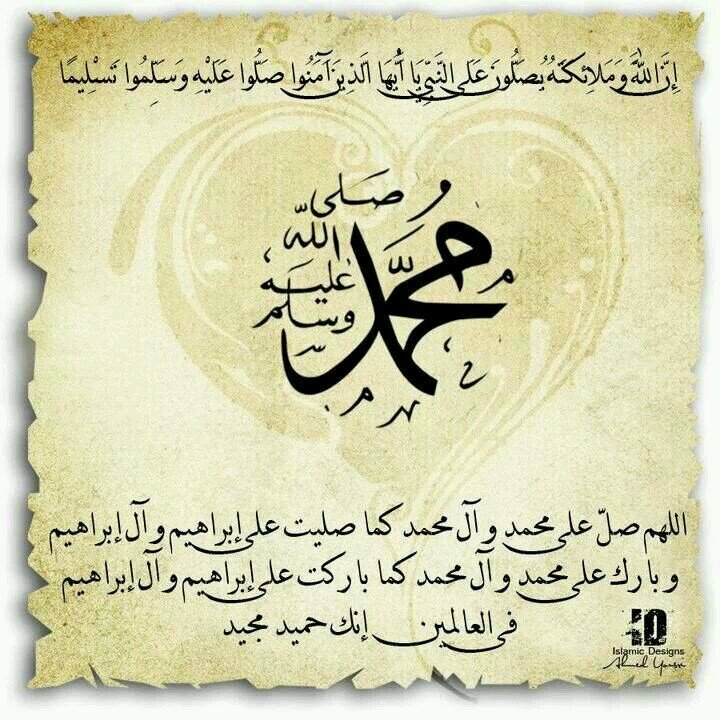 إِنَّ اللَّهَ وَمَلَائِكَتَهُ يُصَلُّونَ عَلَى النَّبِيِّ يَا أَيُّهَا الَّذِينَ آمَنُوا صَلُّوا عَلَيْهِ وَسَلِّمُوا تَسْلِيمًا
محمد
صلى
الله
عليه
وسلم
اللهم صلّ على محمد و آل محمد كما صليت على إبراهيم و آل إبراهيم
و بارك على محمد و آل محمد كما باركت على إبراهيم و آل إبراهيم
في العالمين إنك حميد مجيد
ID
Islamic Designs
Ahmed Yousri